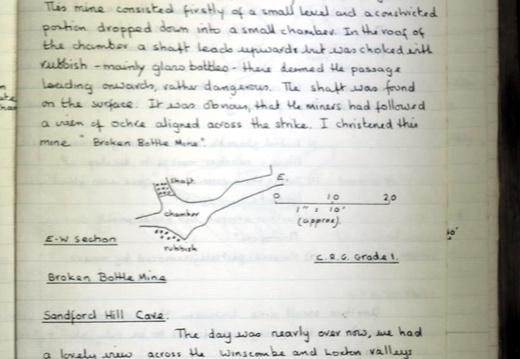 This mine consisted firstly of a small level and a constricted
portion dropped down into a small chamber. In the roof of
the chamber a shaft leads upwards but was choked with
rubbish - mainly glass bottles - there deemed the passage
leading onwards, rather dangerous. The shaft was found
on the surface. It was obvious, that the miners had followed
a vein of ochre aligned across the strike. I christened this
mine "Broken Bottle Mine".
shaft
E.
0 10 20
1" = 10'
(approx)
chamber
rubbish
E-W Section
C.R.G. Grade 1.
Broken Bottle Mine
Sandford Hill Cave.
The day was nearly over now, we had
a lovely view across the Winscombe and Loxton valleys